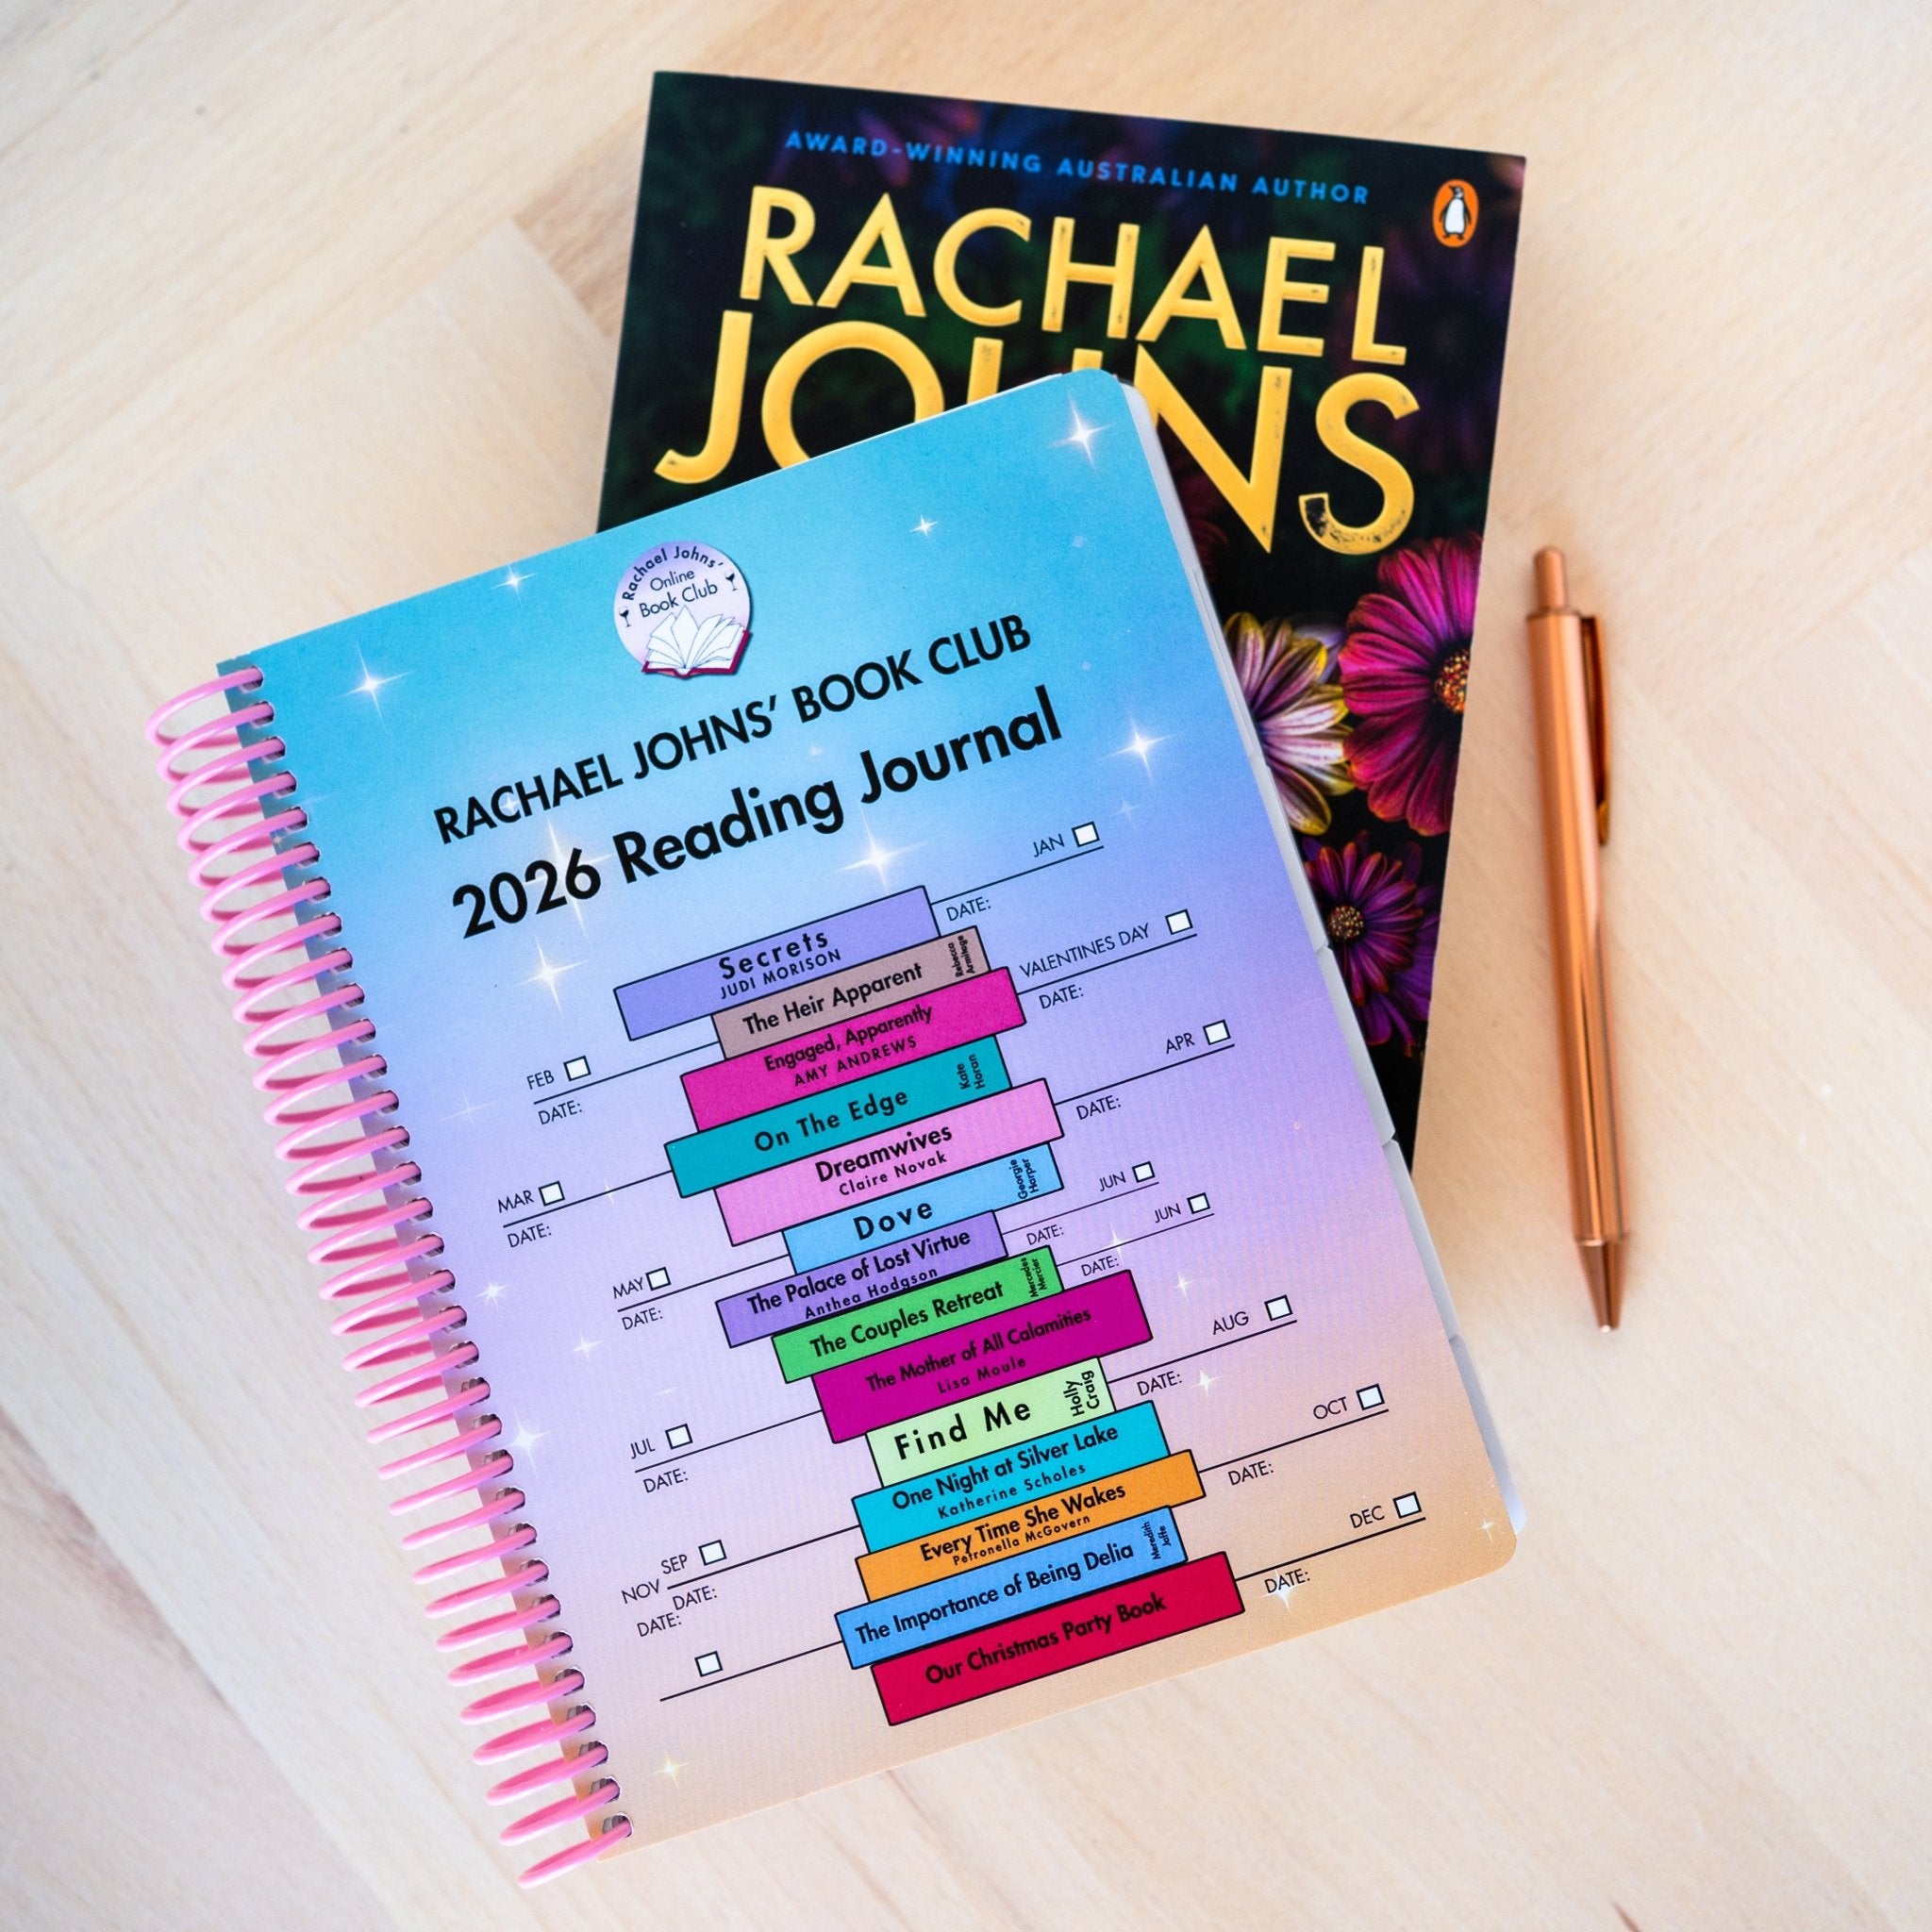 AWARD-WINNING AUSTRALIAN AUTHOR
RACHAEL
JOHNS
Rachael Johns'
Online
Book Club
RACHAEL JOHNS' BOOK CLUB
2026 Reading Journal
JAN
DATE:
Secrets
JUDI MORISON
The Heir Apparent
Rebecca
Armitage
FEB
DATE:
VALENTINES DAY
DATE:
Engaged, Apparently
AMY ANDREWS
On The Edge
Kate
Horan
MAR
DATE:
APR
DATE:
Dreamwives
Claire Novak
Dove
Georgie
Harper
MAY
DATE:
JUN
DATE:
The Palace of Lost Virtue
Anthea Hodgson
JUN
DATE:
The Couples Retreat
Mercedes
Mercier
The Mother of All Calamities
Lisa Moule
JUL
DATE:
AUG
DATE:
Find Me
Holly
Craig
One Night at Silver Lake
Katherine Scholes
SEP
DATE:
OCT
DATE:
Every Time She Wakes
Petronella McGovern
The Importance of Being Delia
Meredith
Jaffe
NOV
DATE:
DEC
DATE:
Our Christmas Party Book